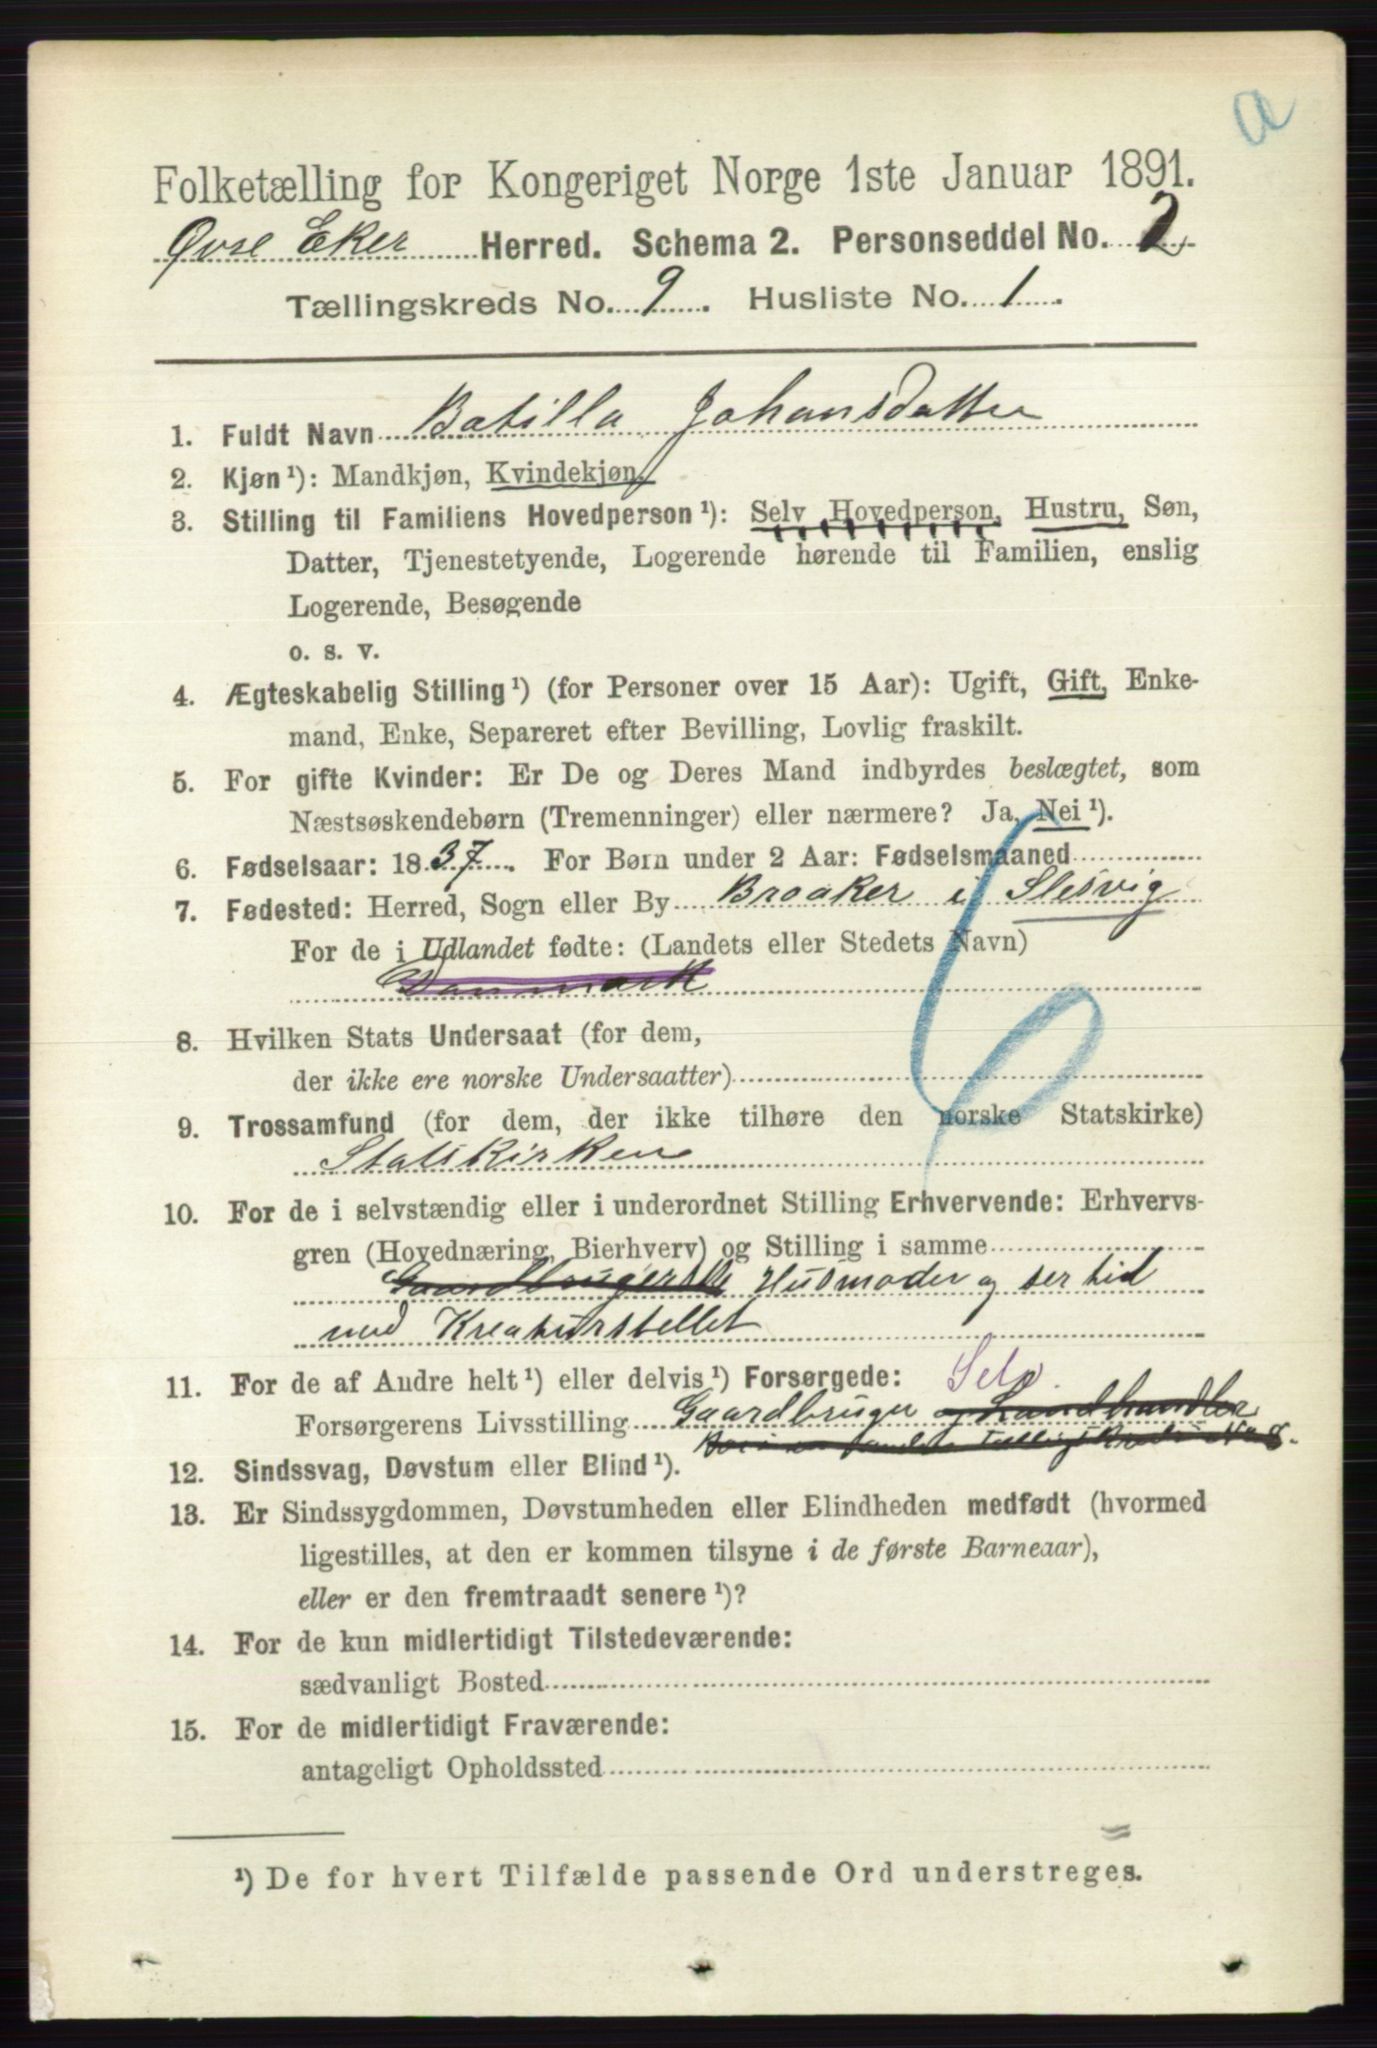 a
Folketælling for Kongeriget Norge 1ste Januar 1891.
Øvre Eker Herred. Schema 2. Personseddel No. 2
Tællingskreds No. 9. Husliste No. 1.
1. Fuldt Navn Batilla Johansdatter
2. Kjøn ¹): Mandkjøn, Kvindekjøn.
3. Stilling til Familiens Hovedperson ¹): Selv Hovedperson, Hustru, Søn,
Datter, Tjenestetyende, Logerende hørende til Familien, enslig
Logerende, Besøgende
o. s. v.
4. Ægteskabelig Stilling ¹) (for Personer over 15 Aar): Ugift, Gift, Enke-
mand, Enke, Separeret efter Bevilling, Lovlig fraskilt.
5. For gifte Kvinder: Er De og Deres Mand indbyrdes beslægtet, som
Næstsøskendebørn (Tremenninger) eller nærmere? Ja, Nei ¹).
6. Fødselsaar: 1837. For Børn under 2 Aar: Fødselsmaaned
7. Fødested: Herred, Sogn eller By Broaker i Slesvig
For de i Udlandet fødte: (Landets eller Stedets Navn)
Danmark
8. Hvilken Stats Undersaat (for dem,
der ikke ere norske Undersaatter)
9. Trossamfund (for dem, der ikke tilhøre den norske Statskirke)
Statskirken
10. For de i selvstændig eller i underordnet Stilling Erhvervende: Erhvervs-
gren (Hovednæring, Bierhverv) og Stilling i samme
Gaardbrugerske Husmoder og ser til
med Kreaturstellet
11. For de af Andre helt ¹) eller delvis ¹) Forsørgede: Selv.
Forsørgerens Livsstilling Gaardbruger og Landhandler
12. Sindssvag, Døvstum eller Blind ¹).
13. Er Sindssygdommen, Døvstumheden eller Blindheden medfødt (hvormed
ligestilles, at den er kommen tilsyne i de første Barneaar),
eller er den fremtraadt senere ¹)?
14. For de kun midlertidigt Tilstedeværende:
sædvanligt Bosted
15. For de midlertidigt Fraværende:
antageligt Opholdssted
¹) De for hvert Tilfælde passende Ord understreges.